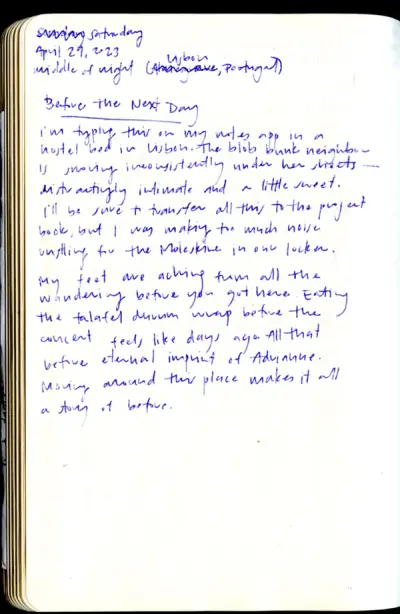 Saturday
April 29, 2023
Lisbon
middle of night (, Portugal)
Before the Next Day
I'm typing this on my notes app in a
hostel bed in Lisbon. The blob bunk neighbor
is snoring inconsistently under her sheets —
disturbingly intimate and a little sweet.
I'll be sure to transfer all this to the project
book, but I was making too much noise
rustling for the Moleskine in our locker.
My feet are aching from all the
wandering before you got here. Eating
the falafel durum wrap before the
concert feels like days ago. All that
before eternal imprint of Adrianne.
Moving around this place makes it all
a story of before.